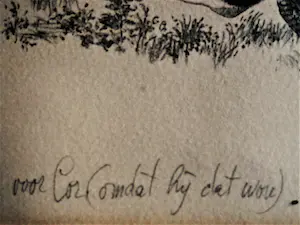 voor Cor (omdat hij dat wou)